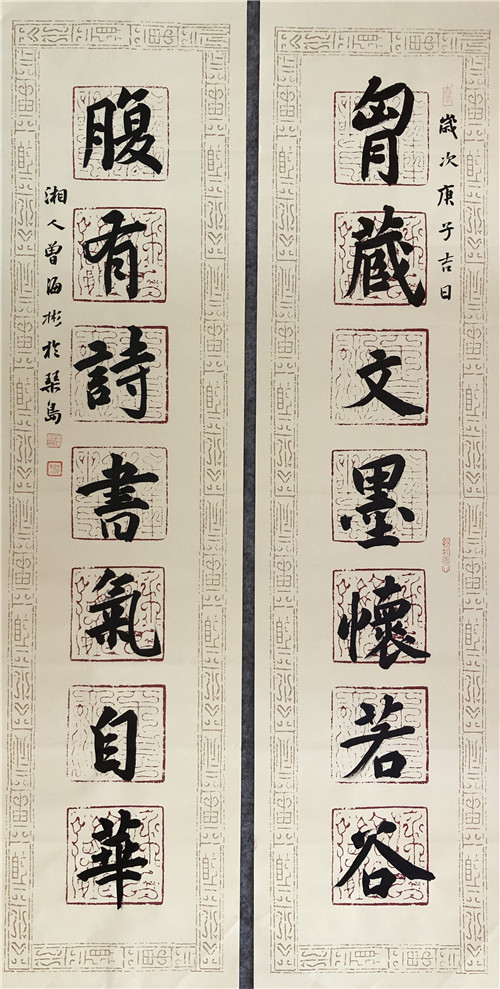 歲次庚子吉日
胷藏文墨懷若谷
腹有詩書氣自華
湘人曾海彬於琴島